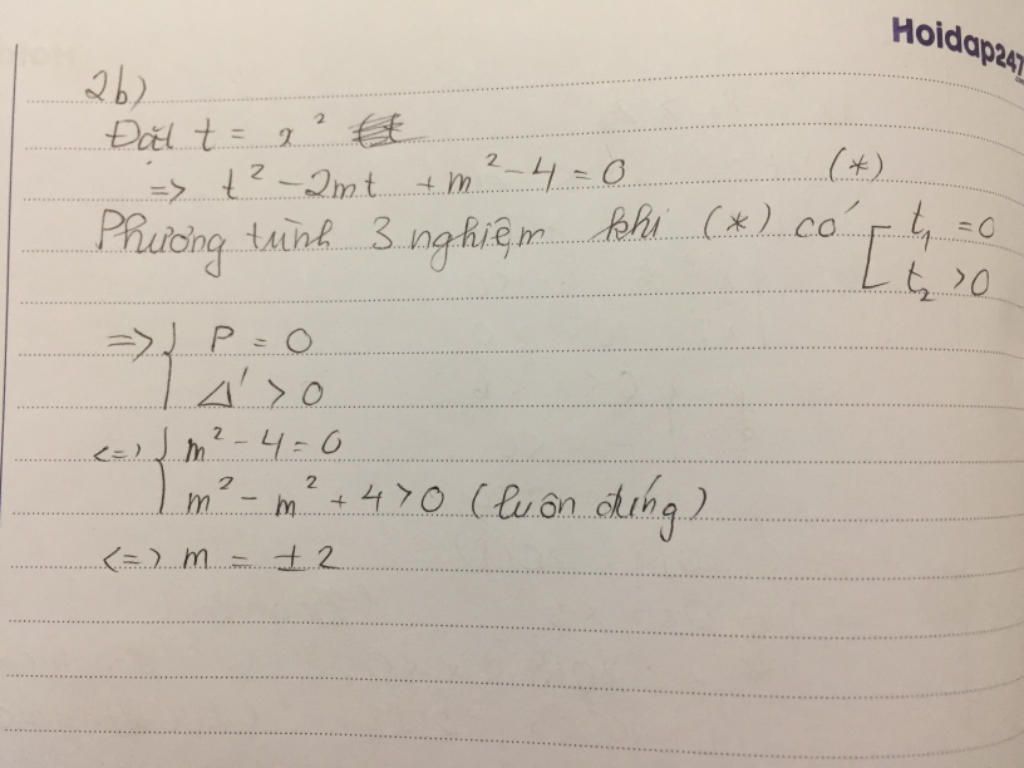 Hoidap247
2b)
Đặt t = x²
=> t² - 2mt + m² - 4 = 0 (*)
Phương trình 3 nghiệm khi (*) có [ t₁ = 0
t₂ > 0
=> { P = 0
Δ' > 0
<=> { m² - 4 = 0
m² - m² + 4 > 0 (luôn đúng)
<=> m = ± 2